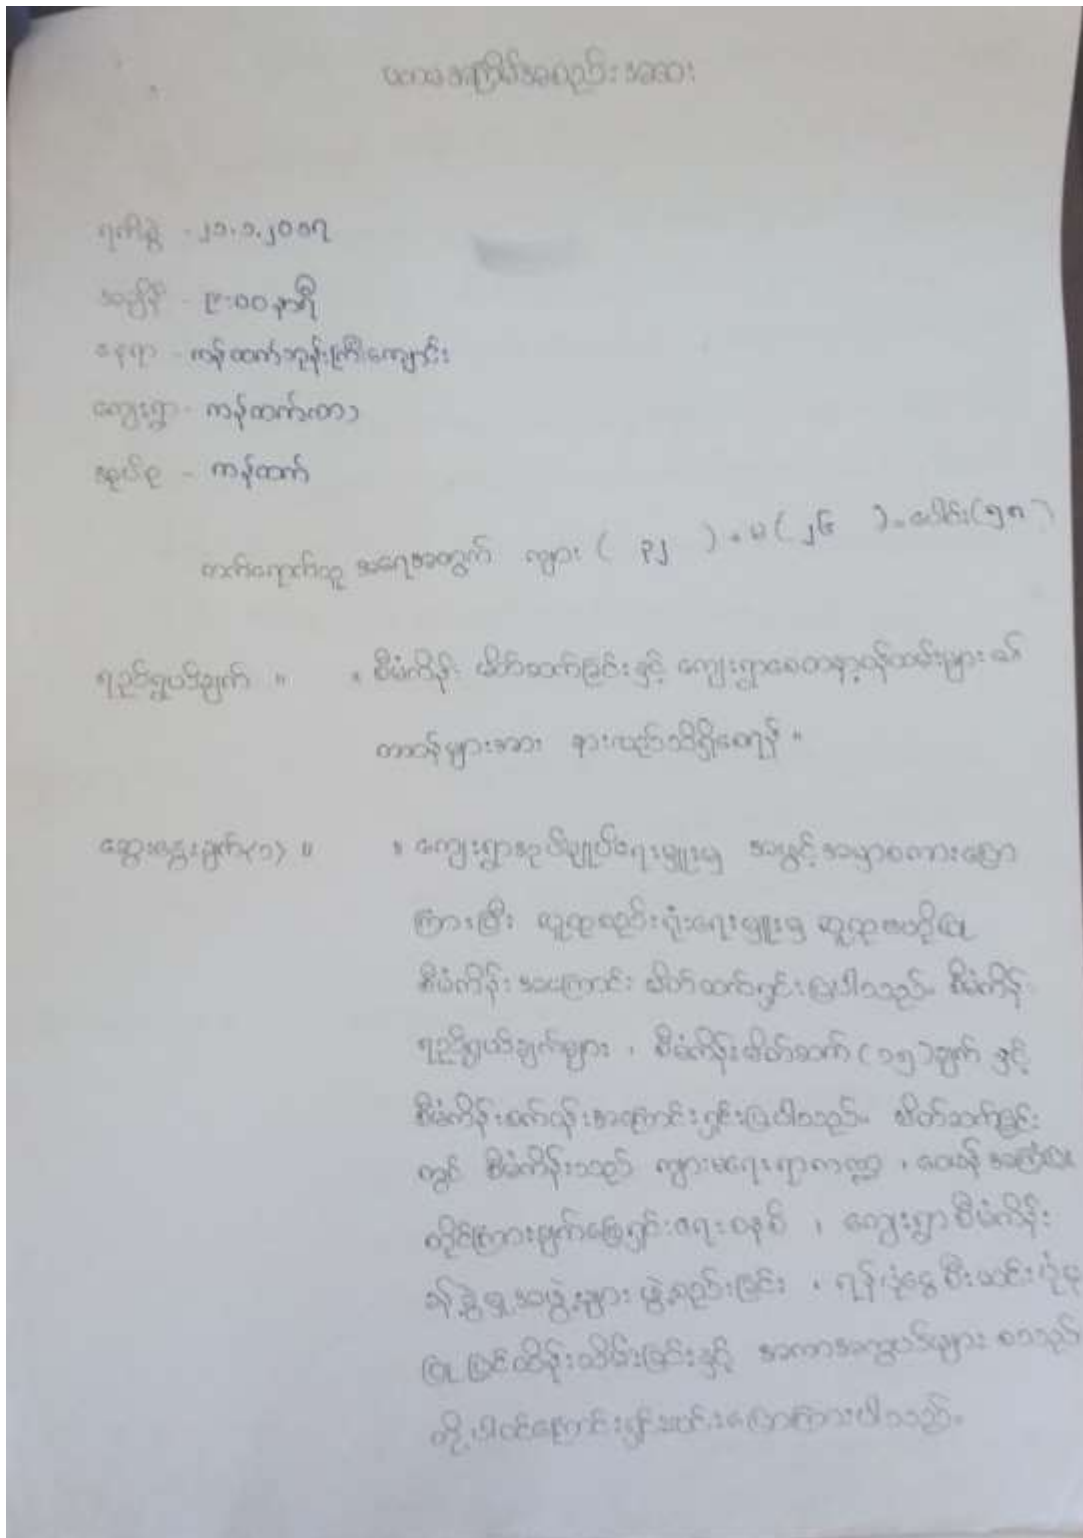 ပထမအကြိမ်အစည်းအဝေး
ရက်စွဲ - ၂၁.၁.၂၀၁၇
အချိန် - ၉:၀၀ နာရီ
နေရာ - ကန်ထက်ဘုန်းကြီးကျောင်း
ကျေးရွာ - ကန်ထက်
အုပ်စု - ကန်ထက်
တက်ရောက်သူ အရေအတွက် ကျား ( ၃၂ ) ၊ မ ( ၂၆ ) ၊ ပေါင်း (၅၈)
ရည်ရွယ်ချက် ။ ။ စီမံကိန်း မိတ်ဆက်ခြင်းနှင့် ကျေးရွာစေတနာ့ဝန်ထမ်းများ ၏
တာဝန်များအား နားလည်သိရှိစေရန် ။
ဆွေးနွေးချက်(၁) ။ ။ ကျေးရွာအုပ်ချုပ်ရေးမှူးမှ အဖွင့်အမှာစကားပြော
ကြားပြီး လူထုစည်းရုံးရေးမှူးမှ လူထုဗဟိုပြု
စီမံကိန်း အကြောင်း မိတ်ဆက်ရှင်းပြပါသည်။ စီမံကိန်း
ရည်ရွယ်ချက်များ ၊ စီမံကိန်းမိတ်ဆက် (၁၅) ချက် နှင့်
စီမံကိန်းစက်ဝန်းအကြောင်းရှင်းပြပါသည်။ မိတ်ဆက်ခြင်း
တွင် စီမံကိန်းသည် ကျားမရေးရာကဏ္ဍ ၊ ဝေဖန်အကြံပြု
တိုင်ကြားချက်ဖြေရှင်းရေးစနစ် ၊ ကျေးရွာစီမံကိန်း
ခွဲမှုအဖွဲ့များ ဖွဲ့စည်းခြင်း ၊ ရန်ပုံငွေစီးဆင်းပုံမှ
ပြုပြင်ထိန်းသိမ်းခြင်းနှင့် အကာအကွယ်များ စသည်
တို့ပါဝင်ကြောင်းရှင်းလင်းပြောကြားပါသည်။